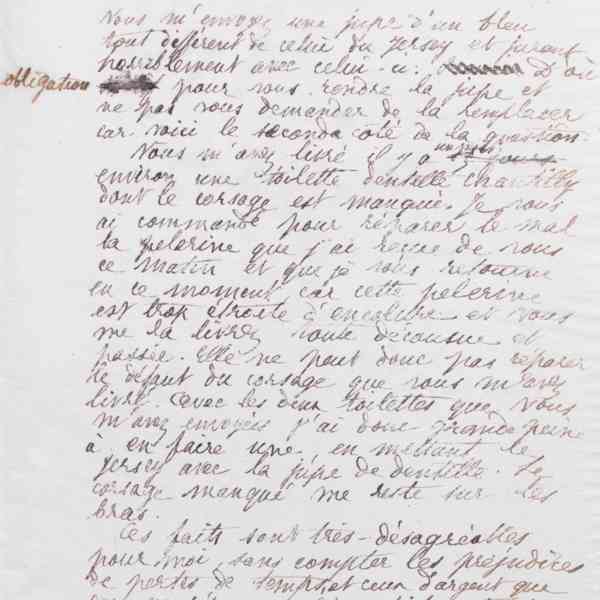 Vous m'envoyez une jupe d'un bleu
tout différent de celui du Jersey et jurant
horriblement avec celui-ci. D'où
obligation pour vous rendre la jupe et
ne pas vous demander de la remplacer
car voici le seconde côté de la question.
Vous m'avez livré il y a
environ une toilette dentelle Chantilly
dont le corsage est manqué. Je vous
ai commandé pour réparer le mal
la pelerine que j'ai reçue de vous
ce matin et que je vous retourne
en ce moment car cette pelerine
est trop étroite d'encolure et vous
me la livrez toute décousue et
passée. Elle ne peut donc pas réparer
le défaut du corsage que vous m'avez
livré. Avec les deux toilettes que vous
m'avez envoyées j'ai donc grande peine
à en faire une, en mettant le
Jersey avec la jupe de dentelle. Le
corsage manqué me reste sur les
bras.
Ces faits sont très-désagréables
pour moi, sans compter les préjudices
de pertes de temps, et ceux d'argent que